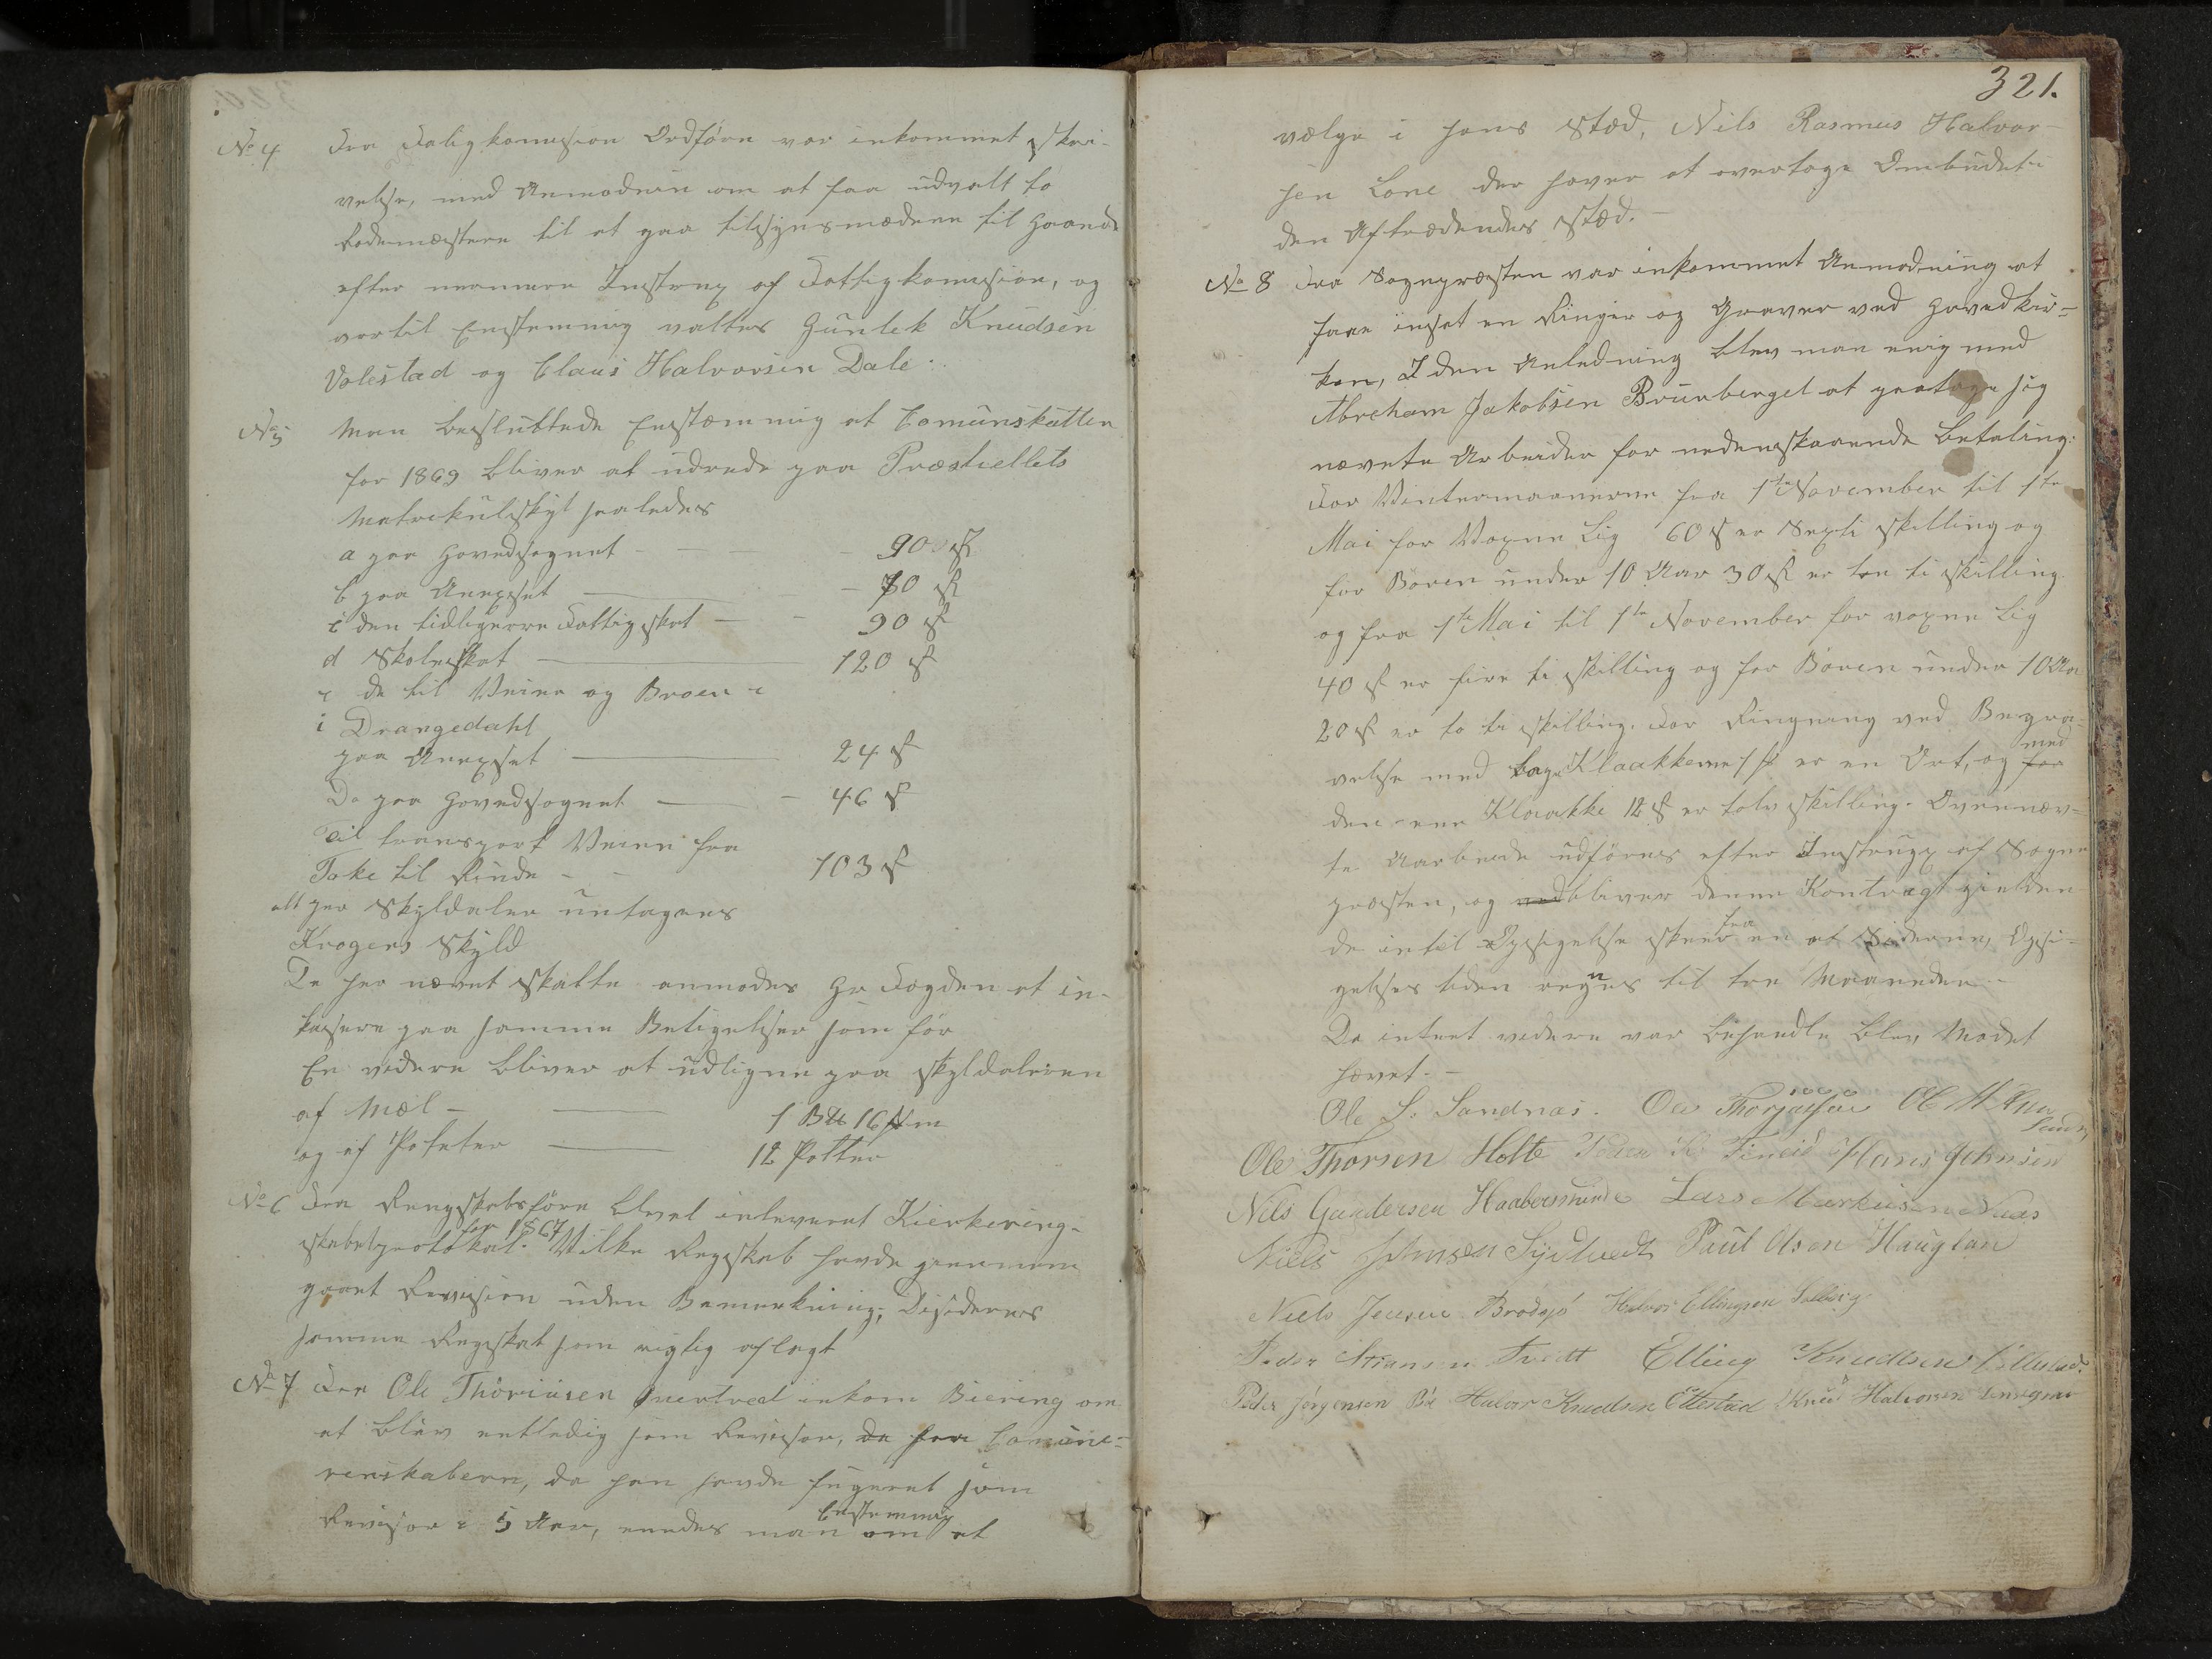 No 4 Fra Fatigkomision Ordføre var inkommet skri-
velse, med Anmodnin om at faa udvalt to
Rodemestere til at gaa tilsynsmædene til Haande
efter nærmere Instrux af Fattigkomision, og
vortil Enstemmig valtes Gunlek Knudsen
Volestad og Claus Halvorsen Dale
No 5 Man besluttede Enstæmmig at Comunskatten
for 1869 bliver at udrede paa Præstiellets
Matrikulskyl saaledes
a paa Hovedsognet - 90 s
b paa Annexset - 70 s
c den tidligere Fattigskat - 90 s
d Skoleskat - 120 s
e de til Veine og Broen
i Drangedahl
paa Annexset - 24 s
Do paa Hovedsognet - 46 s
Til transport Veien fra
Toke til Rinde - 103 s
alt per Skyldaler untagens
Krogens Skyld
De her nævnt Skatte anmodes Hr Fogden at in-
kasere paa samme Betigelser som før
En videre bliver at udligne paa skyldaleren
af Mæl - 1 B 16
og af Poteter - 12 Potter
No 6 Fra Rengskabsføre blvet inleveret Kierkereng-
skabsprotokal for 1867. Vilke Regskab havde giennem
gaaet Revision uden Bemerkning; Disidernes
samme Regskab som rigtig aflagt
No 7 Fra Ole Thorsen inkom Biering om
at blev entledig som Revisor, da fra Comune-
renskabern, da han havde fugeret som
Revisor i 5 Aar, enedes man Enstemmig om at
321.
vælge i hans Stæd, Nils Rasmus Halvor-
sen Lone der haver at overtage Ombudet i
den Aftrædendes Stæd. -
No 8 Fra Sognepræsten var inkommet Anmodning at
faae inset en Ringer og Graver ved Hovedkir-
ken, I den Anledning blev man enig med
Abreham Jakobsen Brunberget at paatage sig
nævnte Arbeider for nedenstaaende Betaling:
For Vintermaanerne fra 1te November til 1te
Mai for Voxne Lig 60 s er Sexti skilling og
for Børen under 10 Aar 30 s er tre ti skilling.
og fra 1te Mai til 1te November for voxne Lig
40 s er fire ti skilling og for Børen under 10 Aar
20 s er to ti skilling. For Ringning ved Begra-
velse med begge Klaakkerne er en Ort, og med for
den ene Klaakke 12 s er tolv skilling. Ovennæv-
te Aarbeide udføres efter Instrupp af Sogne
præsten, og vedbliver denne Kontragt gielden
de intil Opsigelse skeer fra en af Siderne, Opsi-
gelses tiden regnes til tre Maaneder -
Da intet videre var behandle blev Mødet
hævet. -
Ole S. Sandnas. Ole
Ole Thorsen Holte Hans Johnsen
Nils Gundersen Lars Markusen Naas
Niels Johnsen Paul Olsen Hauglan
Niels Jensen Brødsjø Halvor Ellingsen Solberg
Peder Tvedt Elling Knudsen
Peder Jørgensen Bø Halvor Knudsen Ettestad Knud Halvorsen